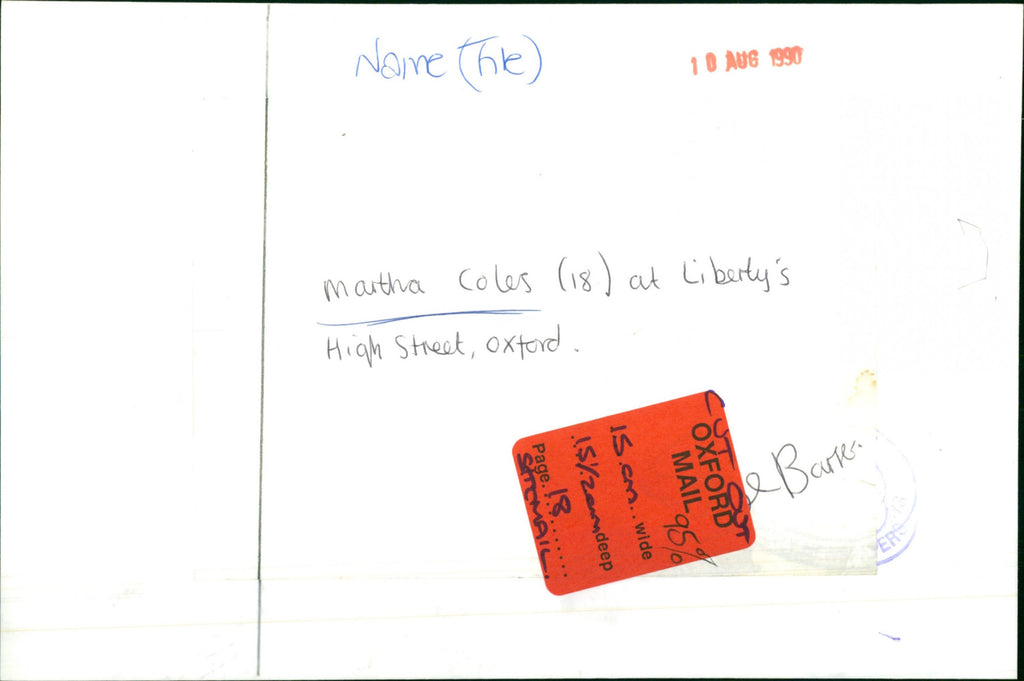 Name (File)
10 AUG 1990
Martha Coles (18) at Liberty's
High Street, Oxford.
CUT OUT
OXFORD
MAIL 95%
15.cm..wide
15½cm deep
Page. 18
Barre
ERS